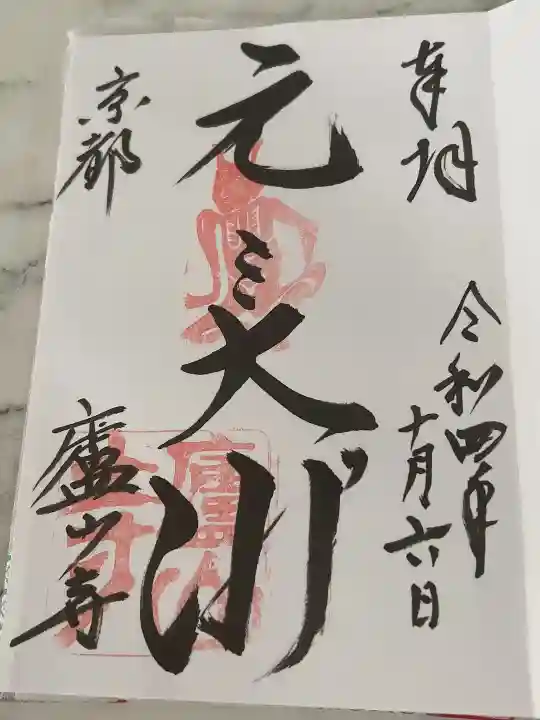 奉拝
令和四年
十月六日
元三大師
京都
廬山寺
廬山寺